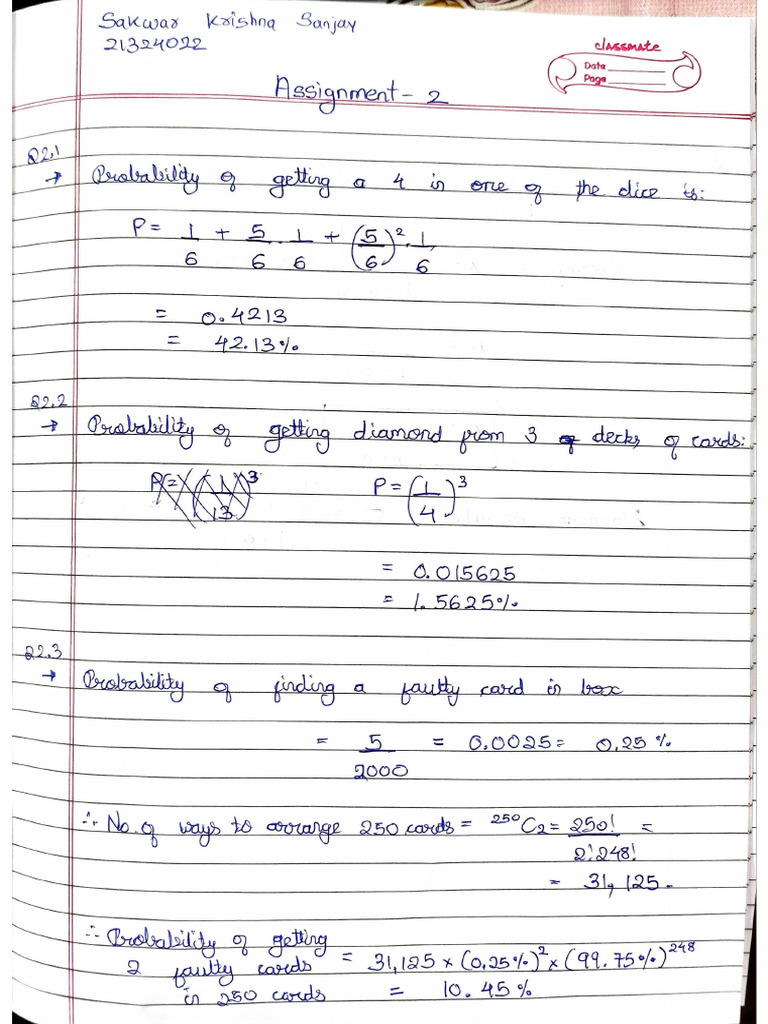 Sakwar Krishna Sanjay
21324022
classmate
Date
Page
Assignment - 2
Q2.1
→ Probability of getting a 4 in one of the dice is:
P = 1/6 + 5/6 . 1/6 + (5/6)² . 1/6
= 0.4213
= 42.13%
Q2.2
→ Probability of getting diamond from 3 decks of cards:
P = (1/13)³ P = (1/4)³
= 0.015625
= 1.5625%
Q2.3
→ Probability of finding a faulty card in box
= 5/2000 = 0.0025 = 0.25%
∴ No. of ways to arrange 250 cards = ²⁵⁰C₂ = 250!/2!248! =
= 31,125.
∴ Probability of getting
2 faulty cards = 31,125 × (0.25%)² × (99.75%)²⁴⁸
in 250 cards = 10.45%